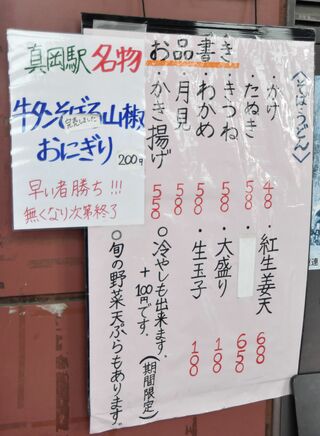 真岡駅 名物
牛タンそぼろ山椒
完売しました
おにぎり
200円
早い者勝ち!!!
無くなり次第終了
お品書き
〈そば・うどん〉
・かけ 480
・たぬき 580
・きつね 580
・わかめ 580
・月見 580
・かき揚げ 550
・紅生姜天 680
・大盛り 100
・生玉子 100
○冷やしも出来ます。
+100円です。(期間限定)
○旬の野菜天ぷらもあります。